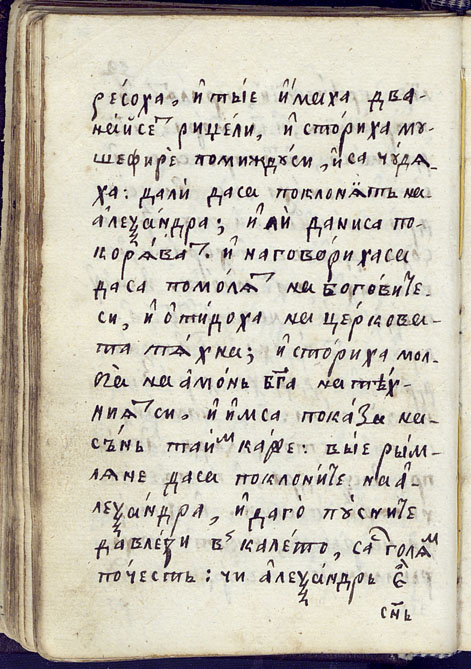 ресоха, и҆ ты́е и҆́маха два-
на́йсет рицели, и҆ сто́риха му-
шефирѐ помиждуси, и҆ са чу́дѧ-
ха: дали̑ даса поклонѧтъ на
а҆леѯа́ндра; и҆лѝ даниса по-
корѧ́ват. и҆ наговорихаса
даса помо́лѧт на богови́те-
си, и҆ ѿидоха на це́ркова-
та тѧ́хна; и҆ сто́риха мол-
ба̀ на а҆мо́нь бг҃а на тѣ́х-
ниѧт си. и҆ и҆́мса пока́за на-
съ́нь таи́м каже: вы́е ры́м-
лѧне даса поклони́те на а҆-
леѯа́ндра, и҆ даго̀ пꙋсните
да́влези в кале́то, са голѧ́м
по́честь: чи а҆леѯа́ндрь є҆
сн҃ь